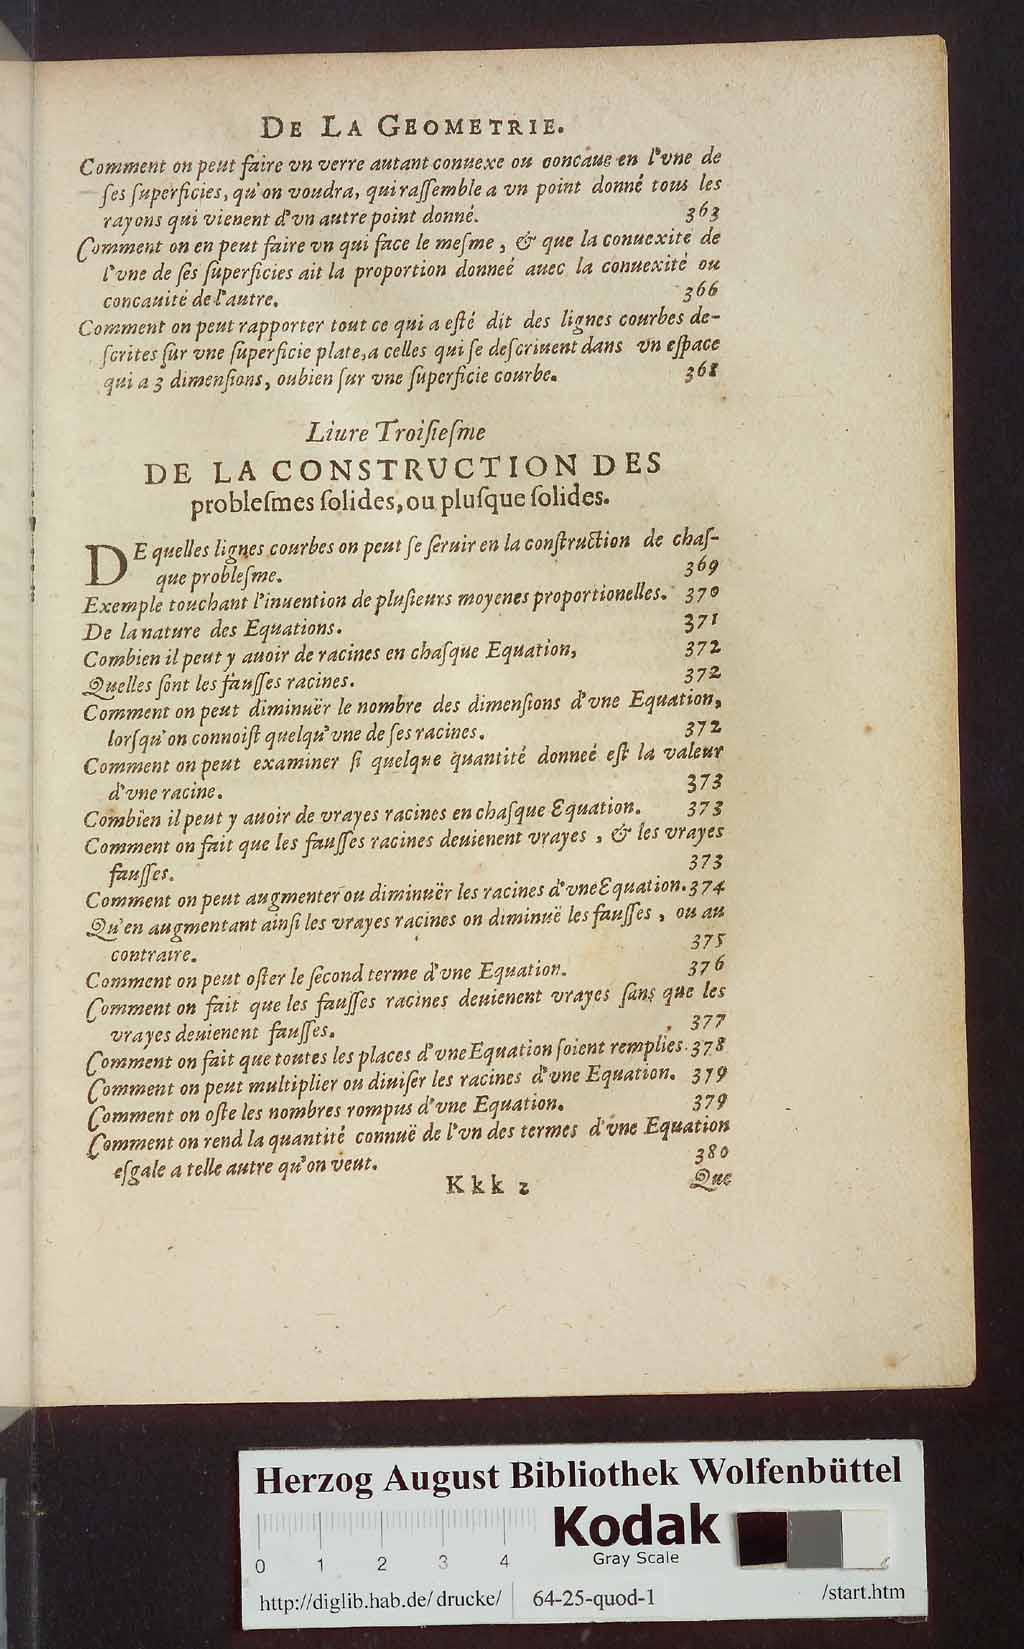 DE LA GEOMETRIE.
Comment on peut faire vn verre autant conuexe ou concaue en l'vne de
ſes ſuperficies, qu'on voudra, qui raſſemble a vn point donné tous les
rayons qui vienent d'vn autre point donné. 363
Comment on en peut faire vn qui face le meſme, & que la conuexité de
l'vne de ſes ſuperficies ait la proportion donneé auec la conuexité ou
concauité de l'autre. 366
Comment on peut rapporter tout ce qui a eſté dit des lignes courbes de-
ſcrites ſur vne ſuperficie plate, a celles qui ſe deſcriuent dans vn eſpace
qui a 3 dimenſions, oubien ſur vne ſuperficie courbe. 368
Liure Troiſieſme
DE LA CONSTRVCTION DES
probleſmes ſolides, ou pluſque ſolides.
DE quelles lignes courbes on peut ſe ſeruir en la conſtruction de chaſ-
que probleſme. 369
Exemple touchant l'inuention de pluſieurs moyenes proportionelles. 370
De la nature des Equations. 371
Combien il peut y auoir de racines en chaſque Equation, 372
Quelles ſont les fauſſes racines. 372
Comment on peut diminuër le nombre des dimenſions d'vne Equation,
lorſqu'on connoiſt quelqu'vne de ſes racines. 372
Comment on peut examiner ſi quelque quantité donneé eſt la valeur
d'vne racine. 373
Combien il peut y auoir de vrayes racines en chaſque Equation. 373
Comment on fait que les fauſſes racines deuienent vrayes, & les vrayes
fauſſes. 373
Comment on peut augmenter ou diminuër les racines d'vne Equation. 374
Qu'en augmentant ainſi les vrayes racines on diminuë les fauſſes, ou au
contraire. 375
Comment on peut oſter le ſecond terme d'vne Equation. 376
Comment on fait que les fauſſes racines deuienent vrayes ſans que les
vrayes deuienent fauſſes. 377
Comment on fait que toutes les places d'vne Equation ſoient remplies. 378
Comment on peut multiplier ou diuiſer les racines d'vne Equation. 379
Comment on oſte les nombres rompus d'vne Equation. 379
Comment on rend la quantité connuë de l'vn des termes d'vne Equation
eſgale a telle autre qu'on veut. 380
Kkk 2 Que
Herzog August Bibliothek Wolfenbüttel
Kodak
Gray Scale
0 1 2 3 4
http://diglib.hab.de/drucke/ 64-25-quod-1 /start.htm